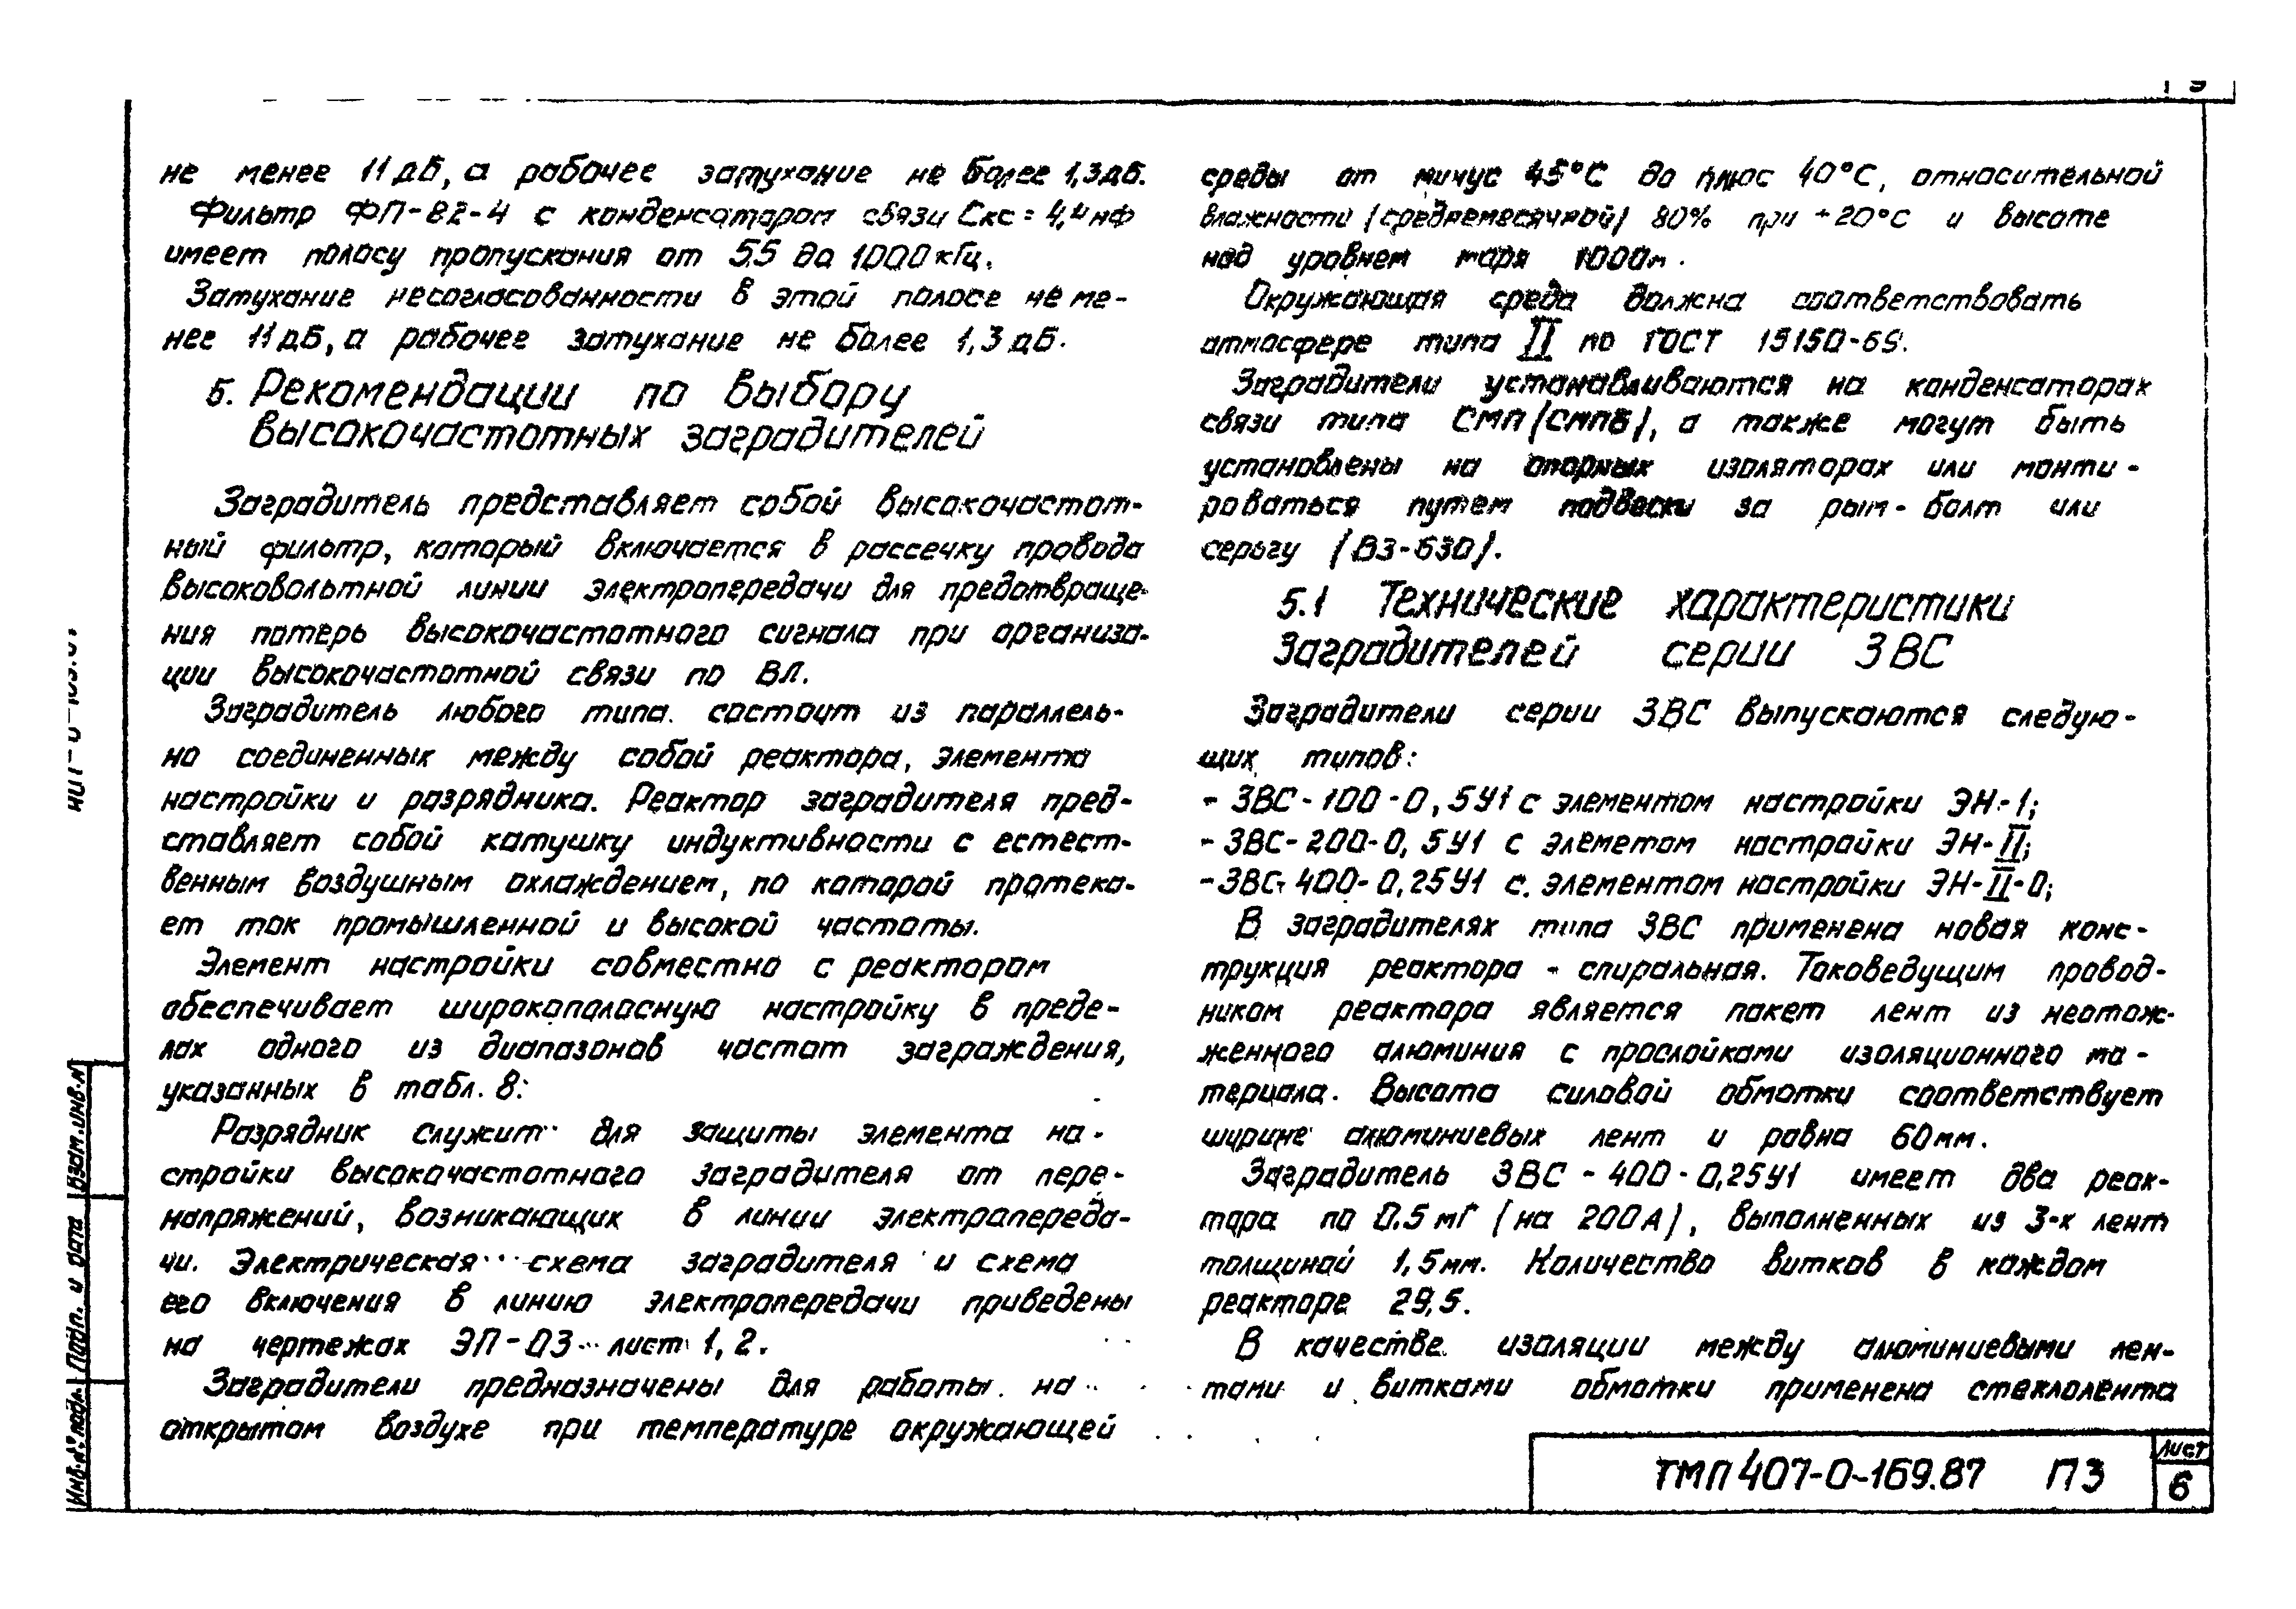 не менее 11дБ, а рабочее затухание не более 1,3дБ.
Фильтр ФП-82-4 с конденсатором связи Скс = 4,4нф
имеет полосу пропускания от 55 до 1000кГц.
Затухание несогласованности в этой полосе не ме-
нее 11дБ, а рабочее затухание не более 1,3дБ.
5. Рекомендации по выбору
высокочастотных заградителей
Заградитель представляет собой высокочастот-
ный фильтр, который включается в рассечку провода
высоковольтной линии электропередачи для предотвраще-
ния потерь высокочастотного сигнала при организа-
ции высокочастотной связи по ВЛ.
Заградитель любого типа состоит из параллель-
но соединенных между собой реактора, элемента
настройки и разрядника. Реактор заградителя пред-
ставляет собой катушку индуктивности с естест-
венным воздушным охлаждением, по которой протека-
ет ток промышленной и высокой частоты.
Элемент настройки совместно с реактором
обеспечивает широкополосную настройку в преде-
лах одного из диапазонов частот заграждения,
указанных в табл. 8:
Разрядник служит для защиты элемента на-
стройки высокочастотного заградителя от пере-
напряжений, возникающих в линии электропереда-
чи. Электрическая схема заградителя и схема
его включения в линию электропередачи приведены
на чертежах ЭП-03 лист 1, 2.
Заградители предназначены для работы на
открытом воздухе при температуре окружающей
среды от минус 45°С до плюс 40°С, относительной
влажности (среднемесячной) 80% при +20°С и высоте
над уровнем моря 1000м.
Окружающая среда должна соответствовать
атмосфере типа II по ГОСТ 15150-69.
Заградители устанавливаются на конденсаторах
связи типа СМП (СМПБ), а также могут быть
установлены на опорных изоляторах или монти-
роваться путем подвески за рым-болт или
серьгу (ВЗ-630).
5.1 Технические характеристики
заградителей серии ЗВС
Заградители серии ЗВС выпускаются следую-
щих типов:
- ЗВС-100-0,5У1 с элементом настройки ЭН-1;
- ЗВС-200-0,5У1 с элеметом настройки ЭН-II;
- ЗВС-400-0,25У1 с. элементом настройки ЭН-II-0;
В заградителях типа ЗВС применена новая конс-
трукция реактора - спиральная. Токоведущим провод-
ником реактора является пакет лент из неотож-
женного алюминия с прослойками изоляционного ма-
териала. Высота силовой обмотки соответствует
ширине алюминиевых лент и равна 60мм.
Заградитель ЗВС-400-0,25У1 имеет два реак-
тора по 0.5мГ (на 200А), выполненных из 3-х лент
толщиной 1,5мм. Количество витков в каждом
реакторе 29,5.
В качестве изоляции между алюминиевыми лен-
тами и витками обмотки применена стеклолента
ТМП 407-0-169.87 ПЗ
Лист
6
Взам.инв.№
Подп. и дата
Инв.№ подл.